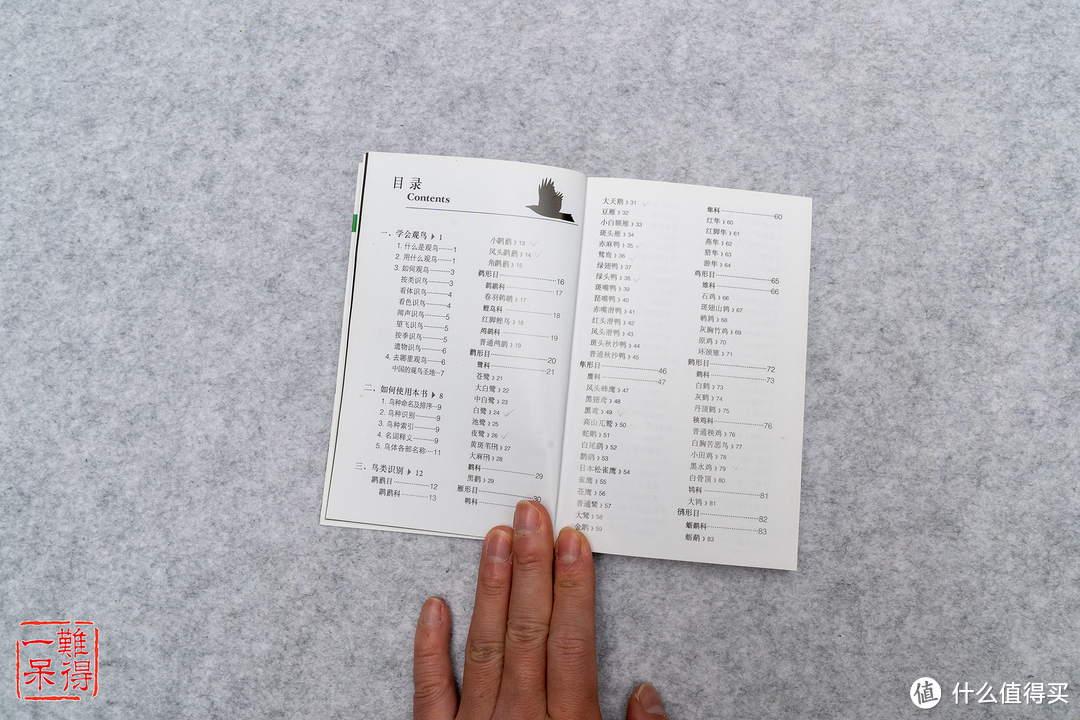 目录
Contents
一、学会观鸟 1
1. 什么是观鸟……1
2. 用什么观鸟……1
3. 如何观鸟……3
按类识鸟……3
看体识鸟……4
看色识鸟……4
闻声识鸟……5
望飞识鸟……5
按季识鸟……5
遗物识鸟……6
4. 去哪里观鸟……6
中国的观鸟圣地…7
二、如何使用本书 8
1. 鸟种命名及排序…9
2. 鸟种识别……9
3. 鸟种索引……9
4. 名词释义……9
5. 鸟体各部名称…11
三、鸟类识别 12
䴙䴘目……12
䴙䴘科……13
小䴙䴘 13
凤头䴙䴘 14
角䴙䴘 15
鹈形目……16
鹈鹕科……17
卷羽鹈鹕 17
鲣鸟科……18
红脚鲣鸟 18
鸬鹚科……19
普通鸬鹚 19
鹳形目……20
鹭科……21
苍鹭 21
大白鹭 22
中白鹭 23
白鹭 24
池鹭 25
夜鹭 26
黄斑苇鳽 27
大麻鳽 28
鹳科……29
黑鹳 29
雁形目……30
鸭科
大天鹅 31
豆雁 32
小白额雁 33
斑头雁 34
赤麻鸭 35
鸳鸯 36
绿翅鸭 37
绿头鸭 38
斑嘴鸭 39
琵嘴鸭 40
赤嘴潜鸭 41
红头潜鸭 42
凤头潜鸭 43
斑头秋沙鸭 44
普通秋沙鸭 45
隼形目……46
鹰科……47
凤头蜂鹰 47
黑翅鸢 48
黑鸢 49
高山兀鹫 50
蛇雕 51
白尾鹞 52
鹊鹞 53
日本松雀鹰 54
雀鹰 55
苍鹰 56
普通鵟 57
大鵟 58
金雕 59
隼科……60
红隼 60
红脚隼 61
燕隼 62
猎隼 63
游隼 64
鸡形目……65
雉科……66
石鸡 66
斑翅山鹑 67
鹌鹑 68
灰胸竹鸡 69
原鸡 70
环颈雉 71
鹤形目……72
鹤科……73
白鹤 73
灰鹤 74
丹顶鹤 75
秧鸡科……76
普通秧鸡 76
白胸苦恶鸟 77
小田鸡 78
黑水鸡 79
白骨顶 80
鸨科……81
大鸨 81
鸻形目……82
蛎鹬科……83
蛎鹬 83
一難
呆得
值 什么值得买